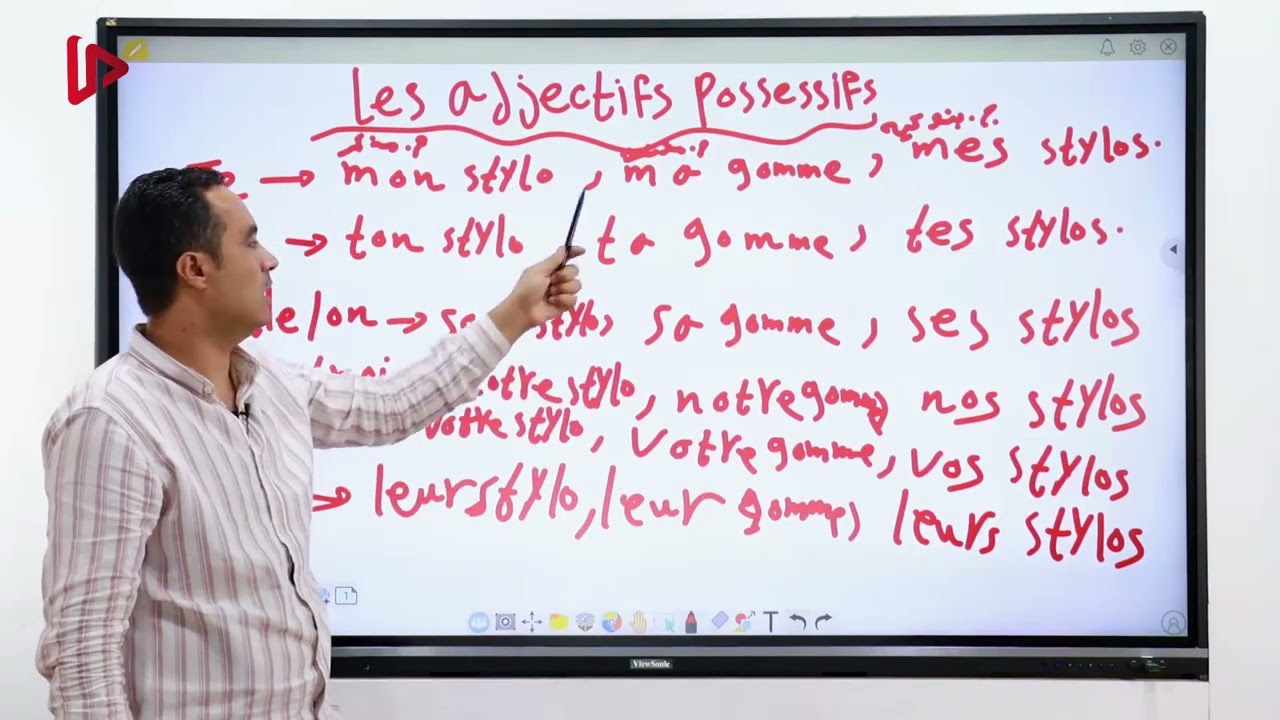 les adjectifs possessifs
mon stylo, ma gomme, mes stylos.
→ ton stylo ta gomme, tes stylos.
le/on → stylo, sa gomme, ses stylos
notre stylo, notre gomme nos stylos
votre stylo, votre gomme, vos stylos
→ leur stylo, leur gomme, leurs stylos
1
T
ViewSonic